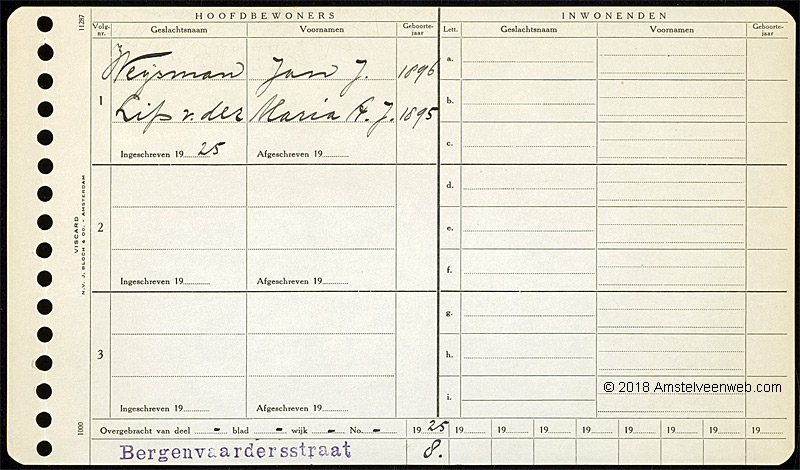 HOOFDBEWONERS INWONENDEN
Volg-nr. Geslachtsnaam Voornamen Geboorte-jaar Lett. Geslachtsnaam Voornamen Geboorte-jaar
11287
1 Weijsman Jan J. 1896
Lips v. der Maria A. J. 1895
Ingeschreven 1925 Afgeschreven 19
2
Ingeschreven 19 Afgeschreven 19
3
Ingeschreven 19 Afgeschreven 19
a.
b.
c.
d.
e.
f.
g.
h.
i.
VISCARD
N.V. J. BLOCH & CO. - AMSTERDAM
1000
© 2018 Amstelveenweb.com
Overgebracht van deel - blad - wijk - No. - 1925 19 19 19 19 19 19 19 19
Bergenvaardersstraat 8.